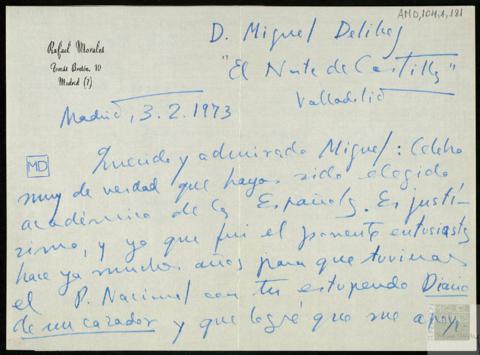 AMD,104,1,181
Rafael Morales
Tomás Bretón, 10
Madrid (7)
D. Miguel Delibes
"El Norte de Castilla"
Valladolid
Madrid, 3.2.1973
MD
Querido y admirado Miguel: Celebro
muy de verdad que hayas sido elegido
académico de la Española. Es justí-
simo, y yo que fui el ponente entusiasta
hace ya muchos años para que tuvieras
el P. Nacional con tu estupendo Diario
de un cazador y que logré que me apoy